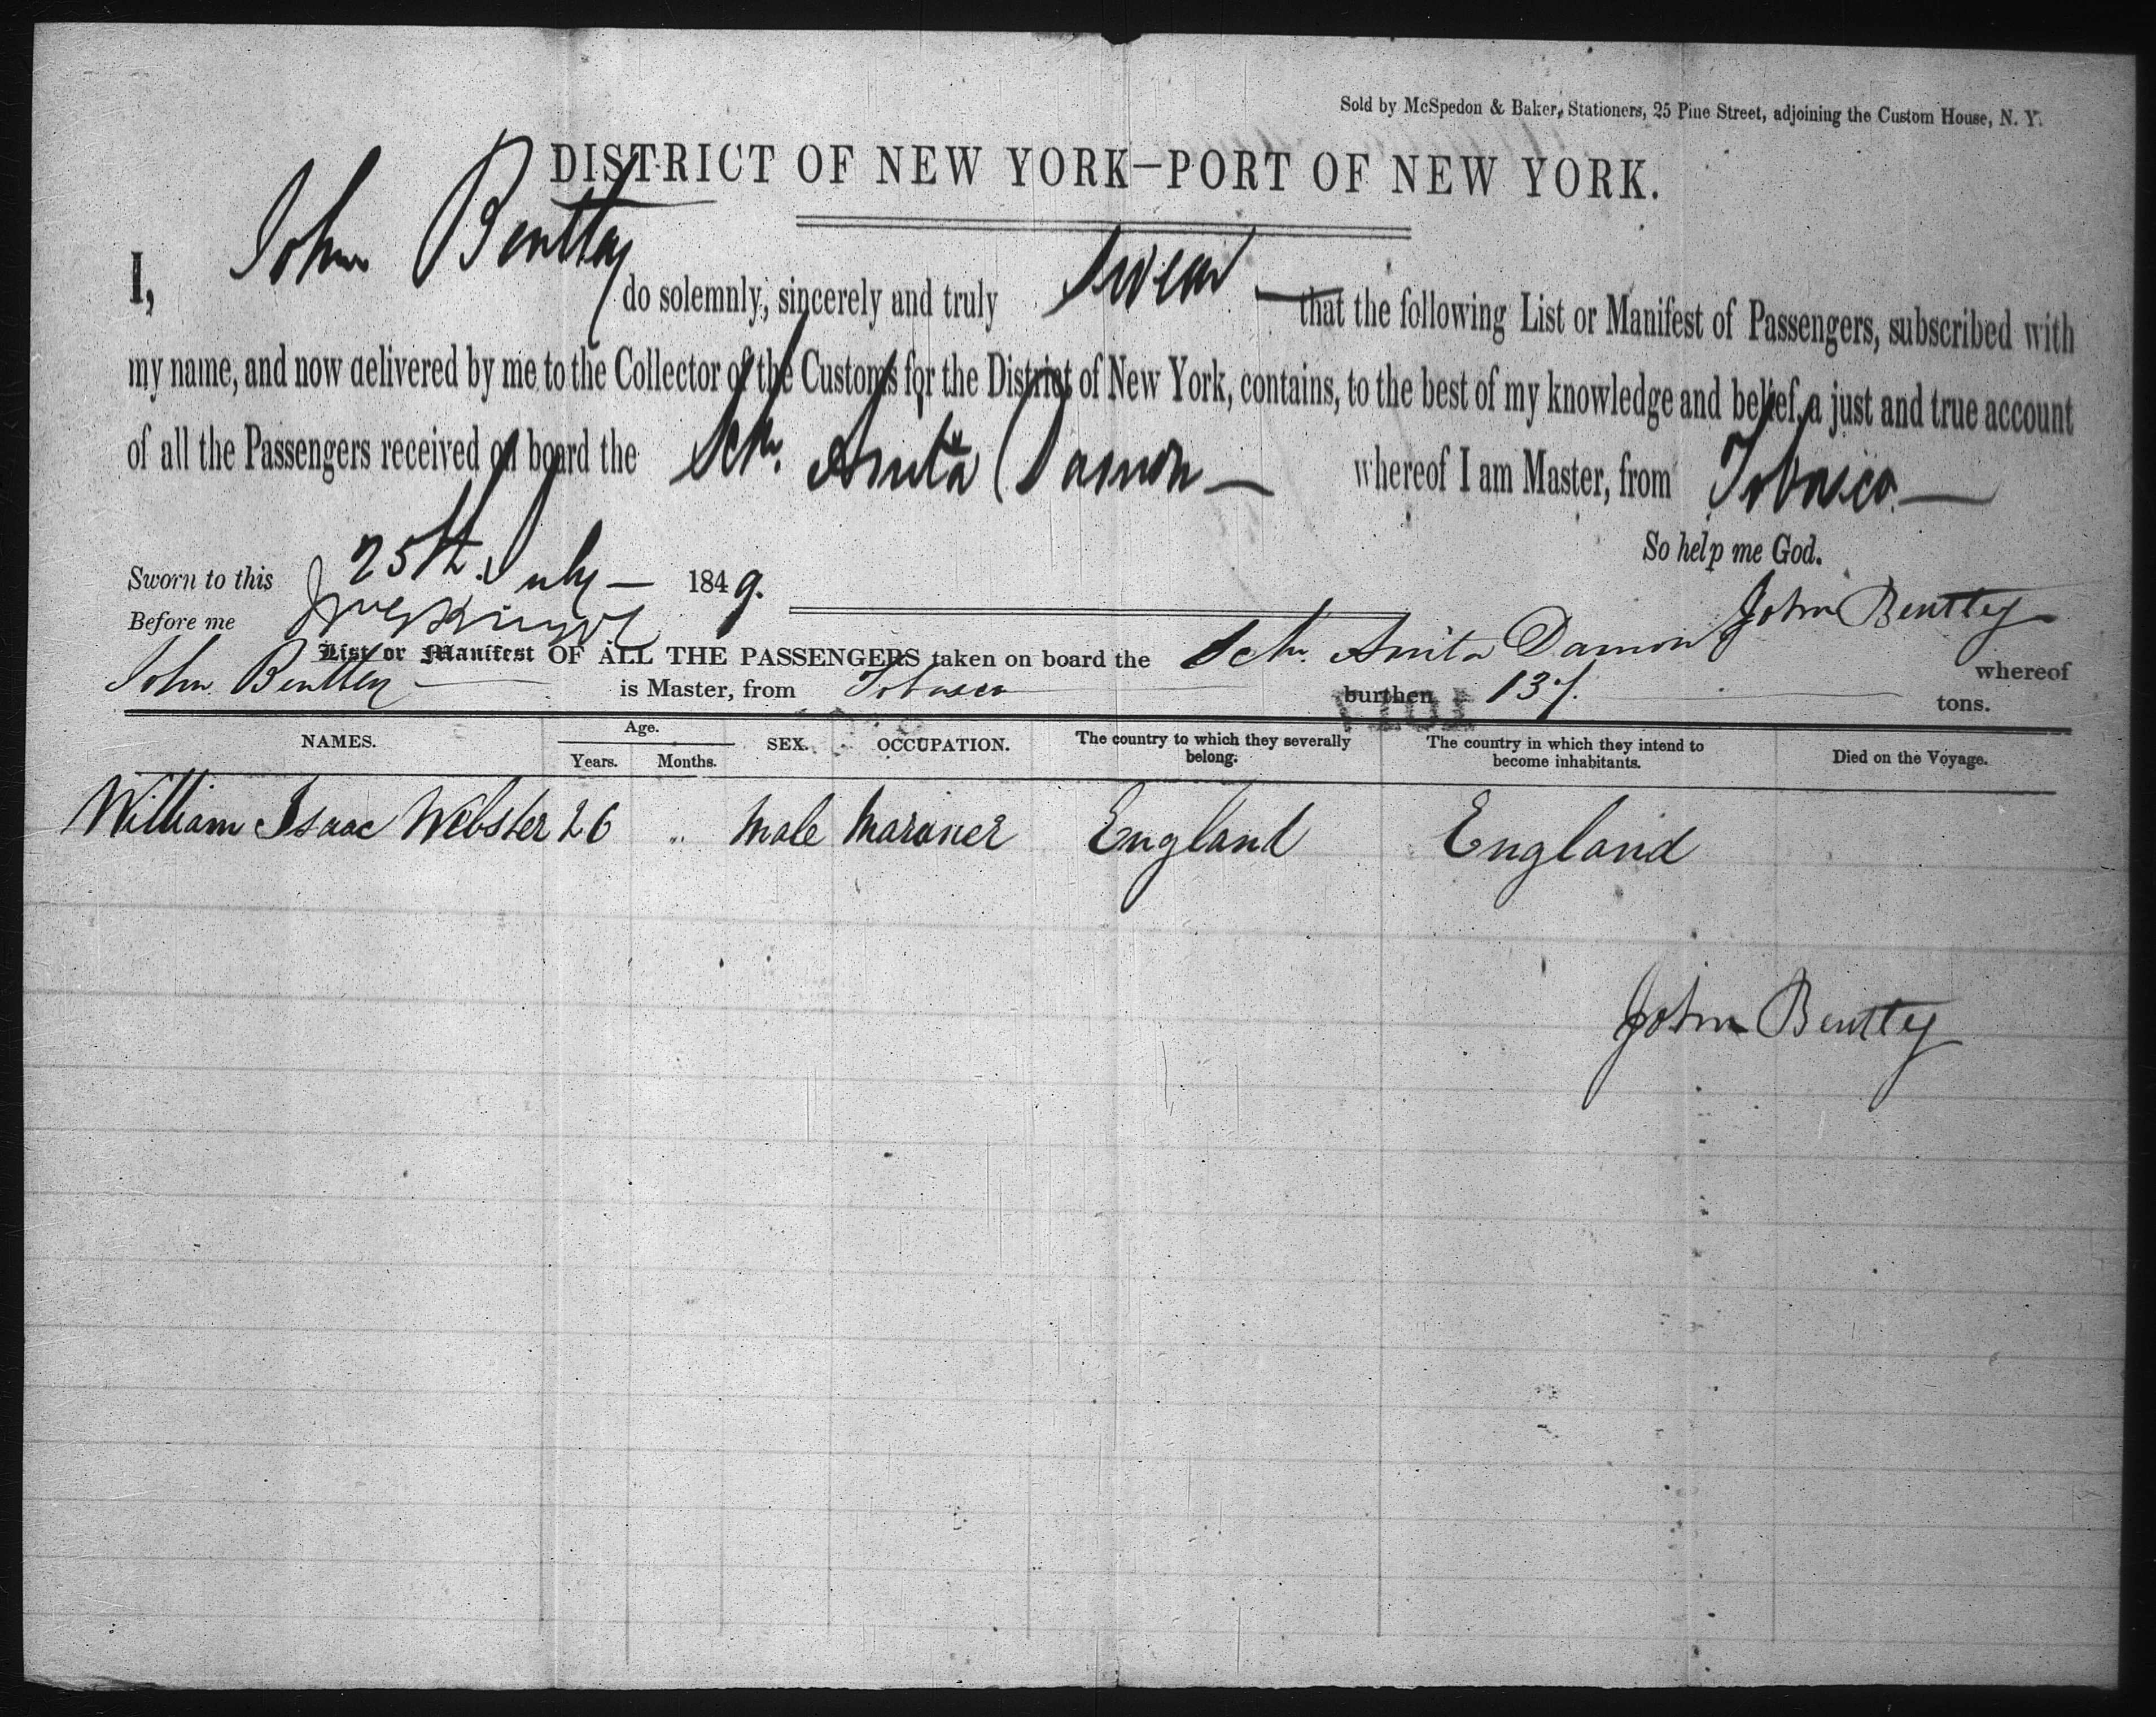 Sold by McSpedon & Baker, Stationers, 25 Pine Street, adjoining the Custom House, N. Y.
DISTRICT OF NEW YORK—PORT OF NEW YORK.
I, John Bentley do solemnly, sincerely and truly swear — that the following List or Manifest of Passengers, subscribed with
my name, and now delivered by me to the Collector of the Customs for the District of New York, contains, to the best of my knowledge and belief, a just and true account
of all the Passengers received on board the Sch. Anita Damon — whereof I am Master, from Tobasco —
So help me God.
Sworn to this 25th July — 1849.
Before me
John Bentley
List or Manifest OF ALL THE PASSENGERS taken on board the Sch. Anita Damon whereof
John Bentley — is Master, from Tobasco burthen 137. tons.
NAMES. Age. Years. Months. SEX. OCCUPATION. The country to which they severally belong. The country in which they intend to become inhabitants. Died on the Voyage.
William Isaac Webster 26 " Male Mariner England England
John Bentley